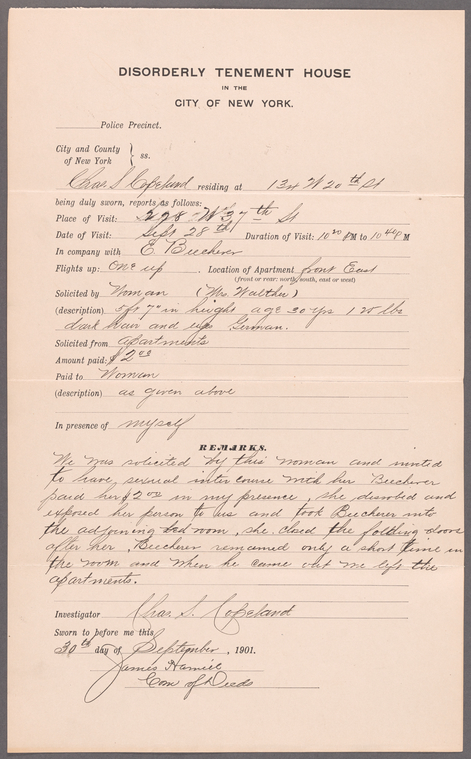 DISORDERLY TENEMENT HOUSE
IN THE
CITY OF NEW YORK.
Police Precinct.
City and County
of New York } ss.
Chas S Copeland residing at 134 W 20th St
being duly sworn, reports as follows:
Place of Visit: 228 W 37th St
Date of Visit: Sept 28th Duration of Visit: 10 20 PM to 10 44 M
In company with E. Beecherer
Flights up: One up. Location of Apartment front East
(front or rear: north, south, east or west)
Solicited by Woman (Mrs Walther)
(description) 5ft 7" in height age 30 yrs 120 lbs
dark hair and eyes German.
Solicited from apartments
Amount paid: $2 00
Paid to Woman
(description) as given above
In presence of myself
REMARKS.
We was solicited by this woman and invited
to have sexual inter course with her Beecherer
paid her $2 00 in my presence, she disrobed and
exposed her person to us and took Beecherer into
the adjoining bed room, she closed the folding doors
after her, Beecherer remained only a short time in
the room and when he came out we left the
apartments.
Investigator Chas. S. Copeland
Sworn to before me this
30th day of September, 1901.
James Hamill
Com of Deeds